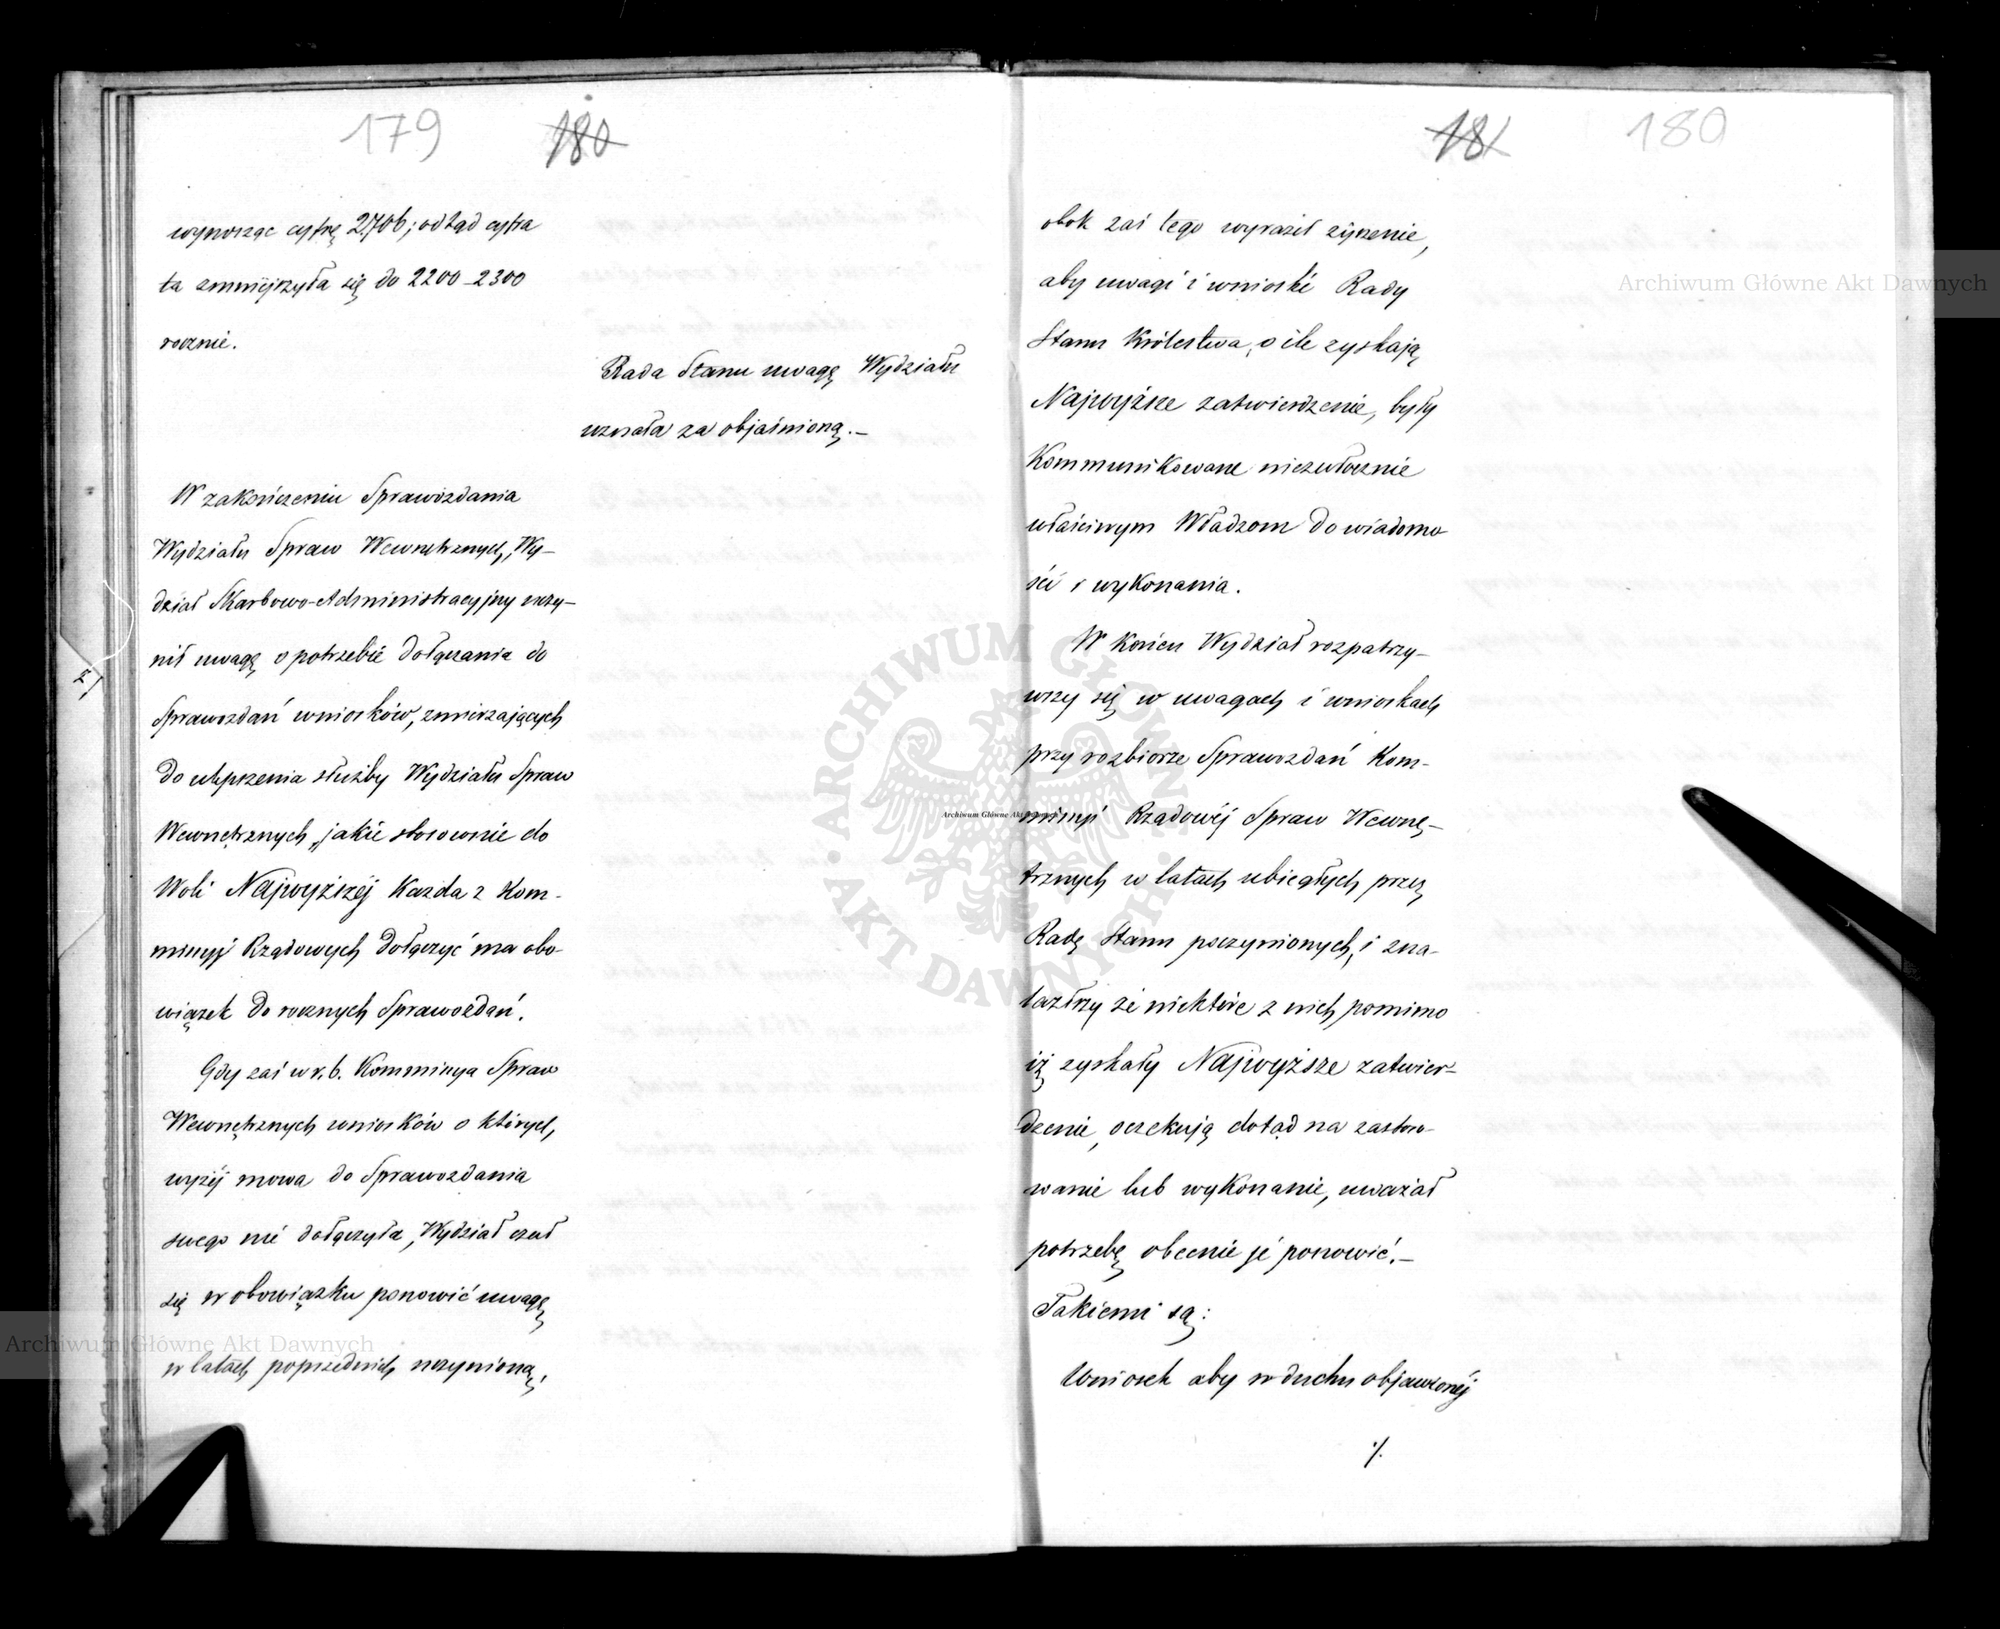 179 180
wynosząc cyfrę 2.706; odtąd cyfra
ta zmniejszyła się do 2200_2300
rocznie.
Rada Stanu uwagę Wydziału
uznała za objaśnioną.—
W zakończeniu Sprawozdania
Wydziału Spraw Wewnętrznych, Wy-
dział Skarbowo-Administracyjny uczy-
nił uwagę o potrzebie dołączania do
Sprawozdań wniosków, zmierzających
do ulepszenia służby Wydziału Spraw
Wewnętrznych, jakie stosownie do
Woli Najwyższéj Każda z Kom-
missyj Rządowych dołączyć ma obo-
wiązek do rocznych Sprawozdań.
Gdy zaś w r. b. Kommissya Spraw
Wewnętrznych wniosków o których,
wyżéj mowa do Sprawozdania
swego nie dołączyła, Wydział czuł
się w obowiązku ponowić uwagę
w latach poprzednich uczynioną,
181 180
obok zaś tego wyraził życzenie,
aby uwagi i wnioski Rady
Stanu Królestwa, o ile zyskają
Najwyższe zatwierdzenie, były
Kommunikowane niezwłocznie
właściwym Władzom do wiadomo
ści i wykonania.
W końcu Wydział rozpatrzy-
wszy się w uwagach i wnioskach
przy rozbiorze Sprawozdań Kom-
missyi Rządowéj Spraw Wewnę-
trznych w latach ubiegłych przez
Radę Stanu poczynionych, i zna-
lazłszy że niektóre z nich pomimo
iż zyskały Najwyższe zatwier-
dzenie, oczekują dotąd na zastoso-
wanie lub wykonanie, uważał
potrzebę obecnie je ponowić.—
Takiemi są:
Wniosek aby w duchu objawionéj
./.
Archiwum Główne Akt Dawnych
Archiwum Główne Akt Dawnych
ARCHIWUM GŁÓWNE
AKT DAWNYCH